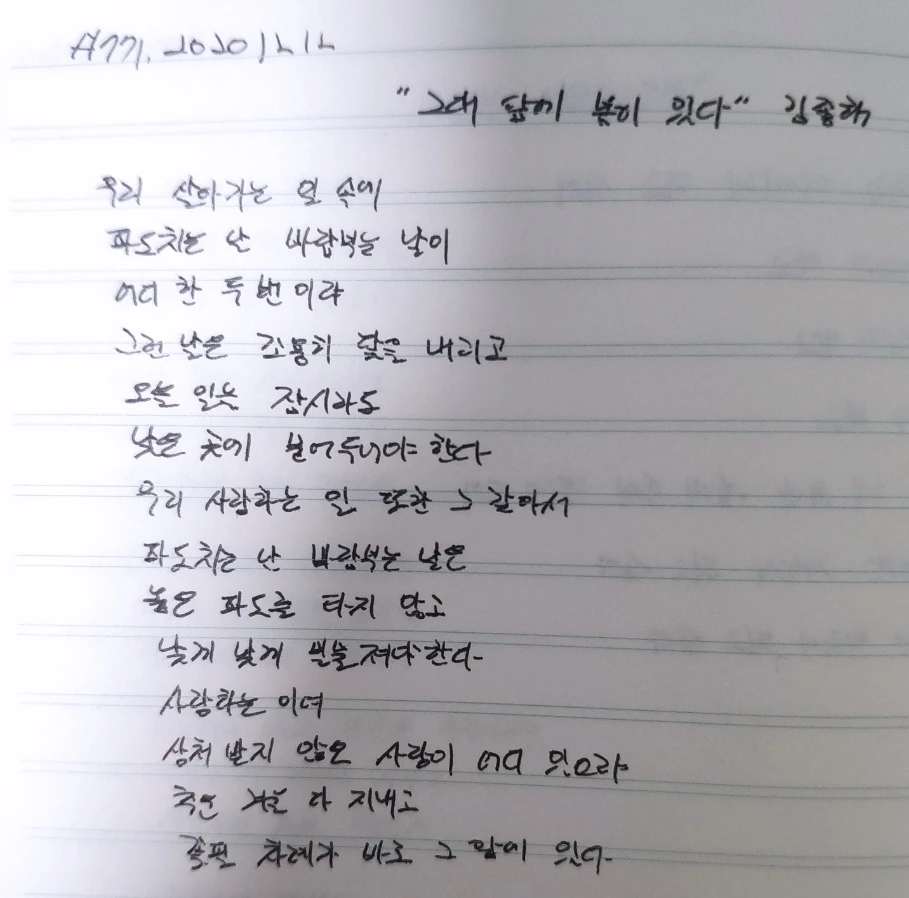 20201212
"그대 앞에 봄이 있다" 김종해
우리 살아가는 일 속에
파도치는 날 바람부는 날이
어디 한 두 번이랴
그런 날은 조용히 닻을 내리고
오늘 일을 잠시라도
낮은 곳에 묻어두어야 한다
우리 사랑하는 일 또한 그 같아서
파도치는 날 바람부는 날은
높은 파도를 타지 않고
낮게 낮게 밀물져야 한다
사랑하는 이여
상처 받지 않은 사랑이 어디 있으랴
추운 겨울 다 지내고
꽃필 차례가 바로 그 앞에 있다